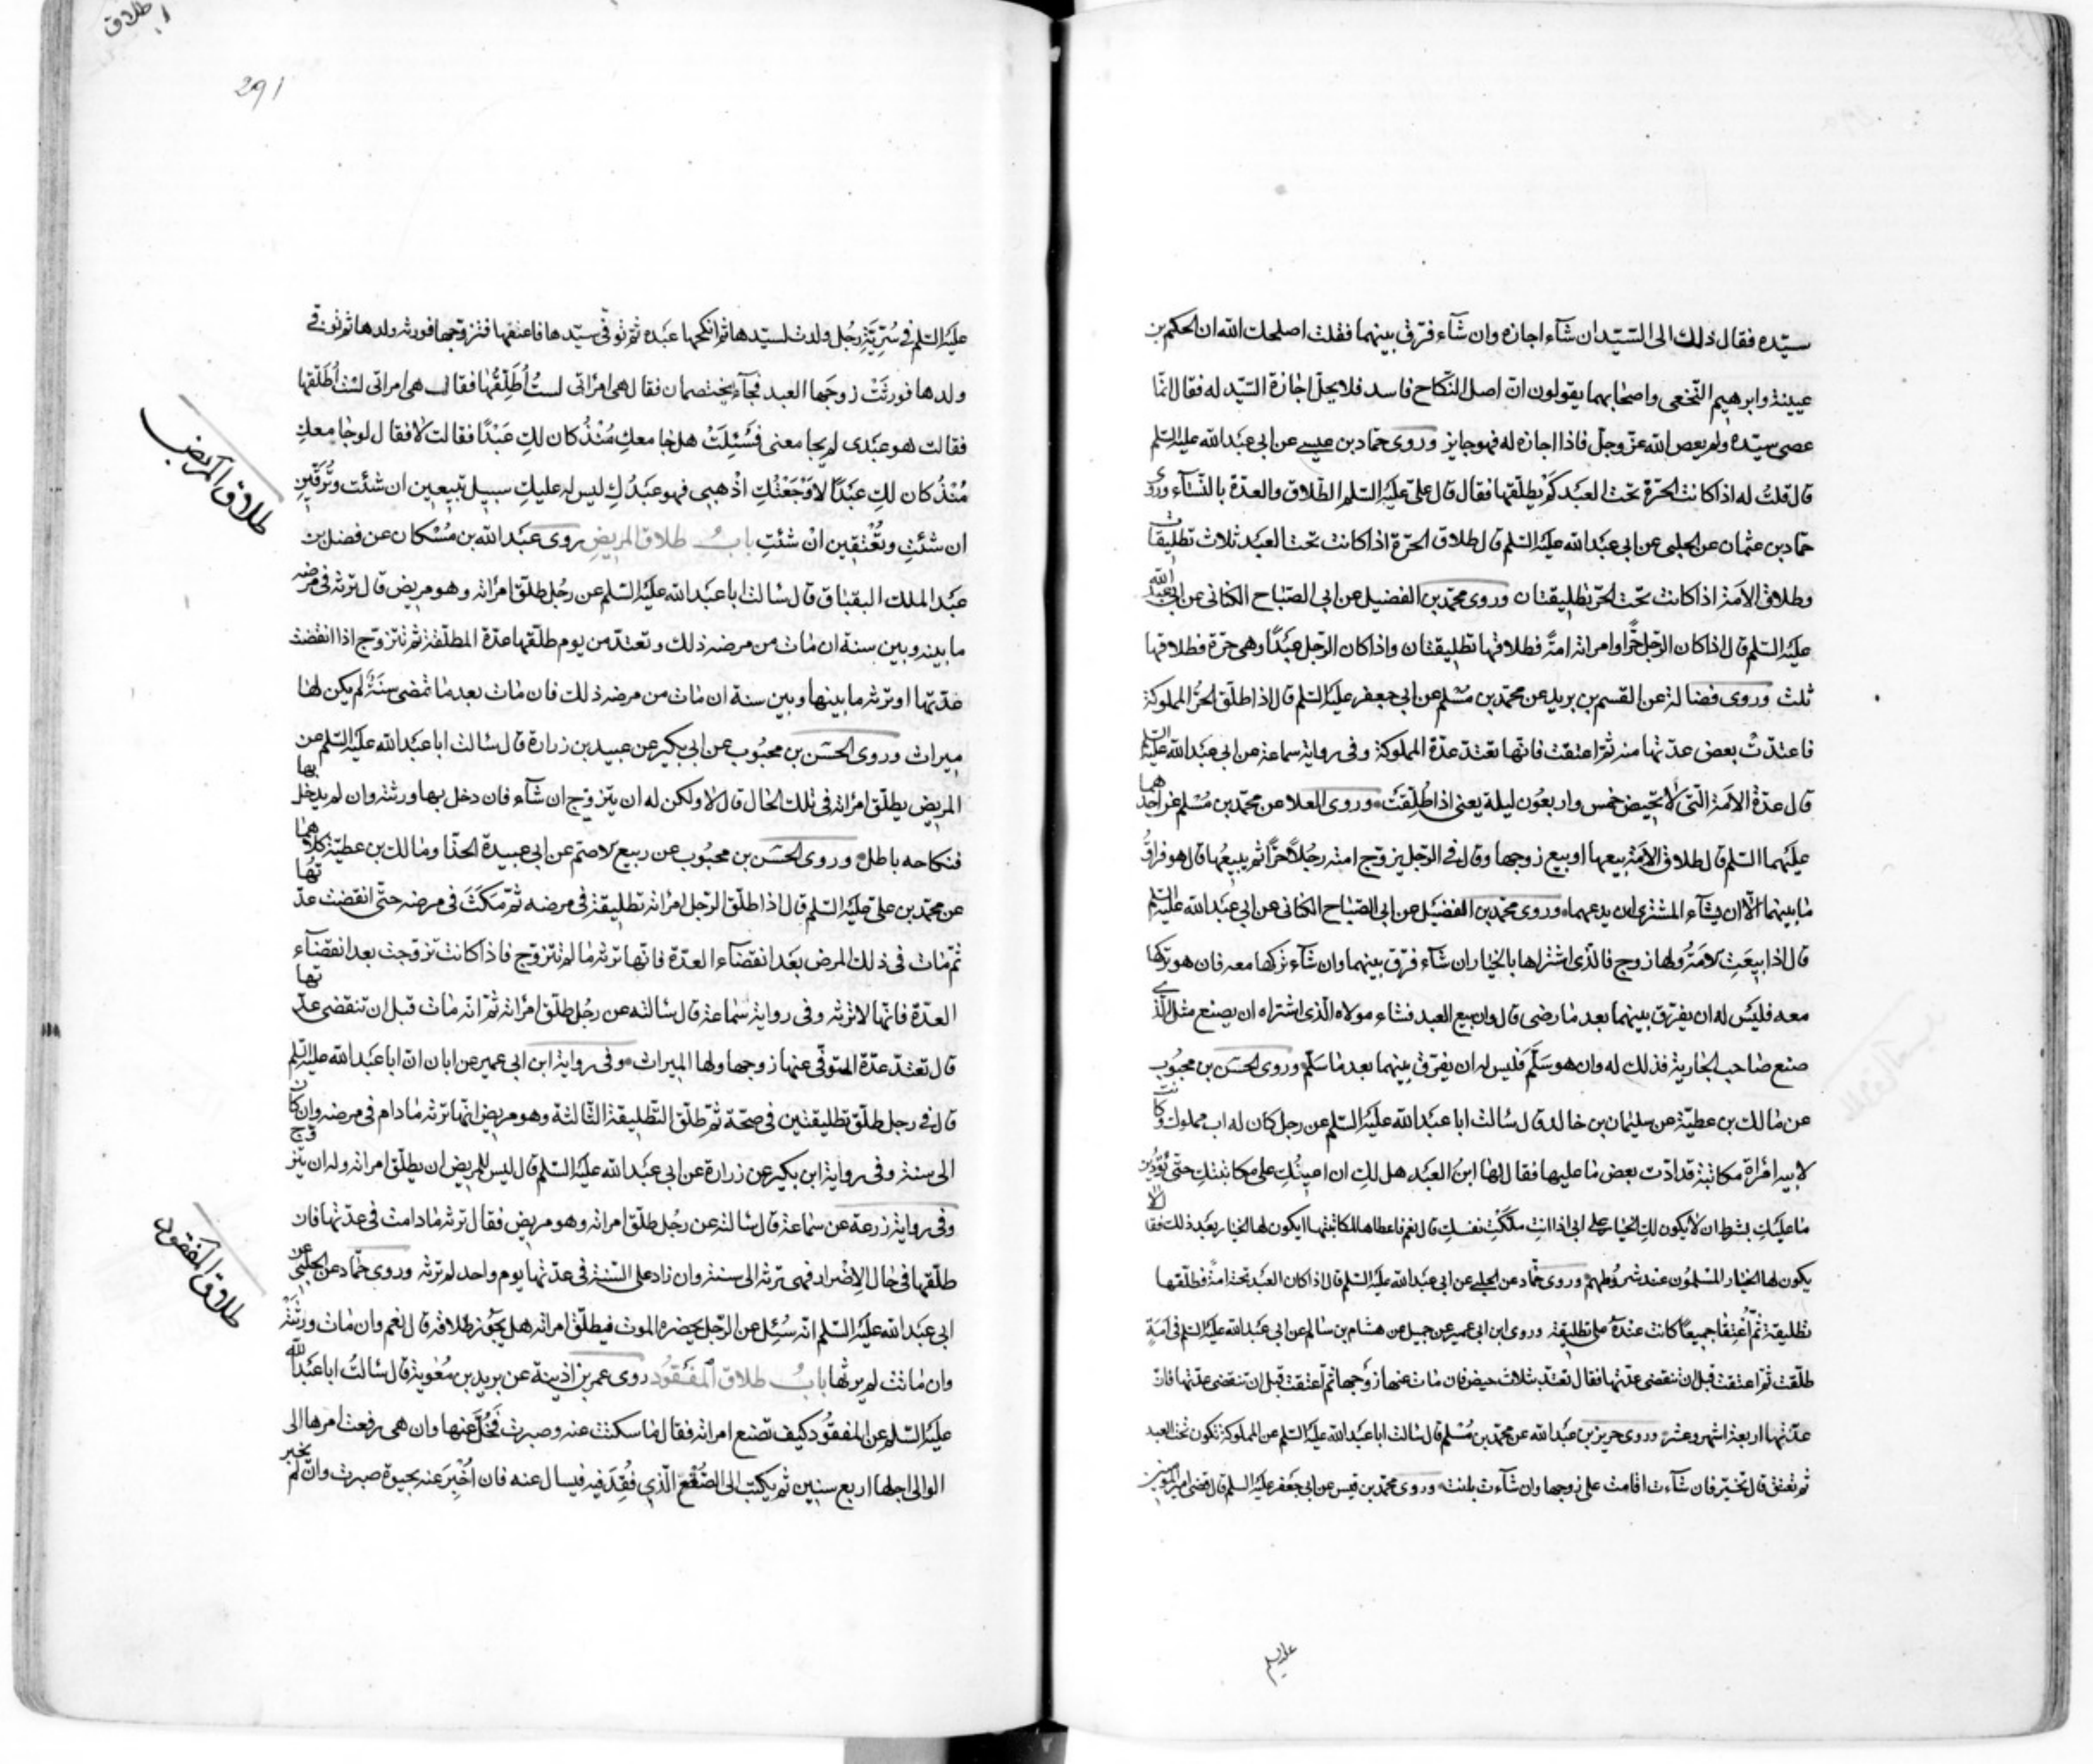 سيّده فقال ذلك الى السّيّد ان شآء اجازه وان شآء فرّق بينهما فقلت اصلحك الله ان الحكم بن
عيينة وابرهيم النّخعى واصحابهما يقولون انّ اصل النّكاح فاسد فلا يحلّ اجازة السّيّد له فقال انّما
عصى سيّده ولم يعص الله عزّ وجلّ فاذا اجازه له فهو جايز وروى حمّاد بن عيسى عن ابى عبد الله عليه السّلم
قال قلت له اذا كانت الحرّة تحت العبد كم يطلّقها فقال قال علىّ عليه السّلم الطّلاق والعدّة بالنّسآء وروى
حمّاد بن عثمان عن الحلبى عن ابى عبد الله عليه السّلم قال طلاق الحرّة اذا كانت تحت العبد ثلاث تطليقات
وطلاق الامة اذا كانت تحت الحرّ تطليقتان وروى محمّد بن الفضيل عن ابى الصّباح الكنانى عن ابى عبد الله
عليه السّلم قال اذا كان الرّجل حرّا وامراته امة فطلاقها تطليقتان واذا كان الرّجل عبدًا وهى حرّة فطلاقها
ثلث وروى فضالة عن القسم بن بريد عن محمّد بن مسلم عن ابى جعفر عليه السّلم قال اذا طلّق الحرّ المملوكة
فاعتدّت بعض عدّتها منه ثمّ اعتقت فانّها تعتد عدّة المملوكة وفى رواية سماعة عن ابى عبد الله عليه السّلم
قال عدّة الامة الّتى لا تحيض خمس واربعون ليلة يعنى اذا طلّقت وروى العلا عن محمّد بن مسلم عن احدهما
عليهما السّلم قال طلاق الامة بيعها او بيع زوجها وقال فى الرّجل يزوّج امته رجُلاً حرًّا ثم يبيعها قال هو فراقُ
ما بينهما الّا ان يشآء المشترى ان يدعهما وروى محمّد بن الفضيل عن ابى الصّباح الكنانى عن ابى عبد الله عليه السّلم
قال اذا بيعت الامة ولها زوج فالّذى اشتراها بالخيار ان شآء فرّق بينهما وان شآء تركها معه فان هو تركها
معه فليس له ان يفرّق بينهما بعد ما رضى قال وان بيع العبد فشاء مولاه الّذى اشتراه ان يصنع مثل الّذى
صنع صاحب الجارية فذلك له وان هو سلّم فليس له ان يفرّق بينهما بعد ما سلّم وروى الحسن بن محبوب
عن مالك بن عطيّة عن سليمان بن خالد قال سالت ابا عبد الله عليه السّلم عن رجل كان له اب مملوك وكانت
لابيه امرأة مكاتبة قد ادّت بعض ما عليها فقال لها ابن العبد هل لك ان اعينك على مكاتبتك حتّى تؤدّين
ما عليك بشرط ان لا يكون لك الخيار على ابى اذا انت ملكت نفسك قال نعم فاعطاها لمكاتبتها ايكون لها الخيار بعد ذلك فقال لا
يكون لها الخيار المسلمون عند شروطهم وروى حمّاد عن الحلبى عن ابى عبد الله عليه السّلم قال اذا كان العبد تحته امة فطلّقها
تطليقة ثمّ اعتقا جميعاً كانت عنده على تطليقة وروى ابن ابى عمير عن جميل عن هشام بن سالم عن ابى عبد الله عليه السّلم فى امة
طلّقت ثمّ اعتقت قبل ان تنقضى عدّتها فقال تعتد بثلاث حيض فان مات عنها زوجها ثم اعتقت قبل ان تنقضى عدّتها فانّ
عدّتها اربعة اشهر وعشر وروى حريز بن عبد الله عن محمّد بن مسلم قال سالت ابا عبد الله عليه السّلم عن المملوكة تكون تحت العبد
ثم تعتق قال تخيّر فان شآءت اقامت على زوجها وان شآءت بانت وروى محمّد بن قيس عن ابى جعفر عليه السّلم قال قضى امير المؤمنين
عليه السلم
طلاق
291
عليه السّلم فى سُرّيّة رجُل ولدت لسيّدها ثم انكحها عبده ثمّ توفّى سيّدها فاعتقها فتزوّجها فورثه ولدها ثم توفّى
ولدها فورثت زوجَها العبد فجآء يختصمان فقال هى امرأتى لستُ اُطلّقها فقال هى امراتى لست اُطلّقها
فقالت هو عبدى لم يجامعنى فسُئِلت هل جامعكِ منذُ كان لكِ عبدًا فقالت لا فقال لو جامعكِ
منذُ كان لكِ عبدًا لاوجعتُكِ اذهبى فهو عبدُكِ ليس له عليكِ سبيل تبيعين ان شئت وتُرقّين
ان شئتِ وتُعتقين انْ شئتِ بابُ طلاق المريض روى عبد الله بن مُسكان عن فضل بن
عبد الملك البقباق قال سالت ابا عبد الله عليه السّلم عن رجُل طلّق امرأته وهو مريض قال ترثه فى مرضه
ما بينه وبين سنة ان مات من مرضه ذلك وتعتدّ من يوم طلّقها عدّة المطلّقة ثم تتزوّج اذا انقضت
عدّتها وترثه ما بينها وبين سنة ان مات من مرضه ذلك فان مات بعد ما تمضى سنةٌ لم يكن لها
ميراث وروى الحسن بن محبُوب عن ابى بكير عن عبيد بن زرارة قال سالت ابا عبد الله عليه السّلم عن
المريض يطلّق امرأته فى تلك الحال قال لا ولكن له ان يتزوّج ان شآء فان دخل بها ورثته وان لم يدخل بها
فنكاحه باطل وروى الحسن بن محبُوب عن ربيع الاصم عن ابى عبيدة الحذّا ومالك بن عطيّة كلاهما
عن محمّد بن على عليه السّلم قال اذا طلّق الرّجل امرأته تطليقة فى مرضه ثمّ مكث فى مرضه حتّى انقضت عدّتها
ثم مات فى ذلك المرض بعد انقضآء العدّة فانّها ترثه ما لم تتزوّج فاذا كانت تزوّجت بعد انقضآء
العدّة فانّها لا ترثه وفى رواية سماعة قال سالته عن رجُل طلّق امرأته ثمّ انّه مات قبل ان تنقضى عدّتها
قال تعتدّ عدّة المتوفّى عنها زوجها ولها الميراث وفى رواية ابن ابى عمير عن ابان انّ ابا عبد الله عليه السّلم
قال فى رجل طلّق تطليقتين فى صحّة ثمّ طلّق التّطليقة الثّالثة وهو مريض انّها ترثه مادام فى مرضه وان كان
الى سنة وفى رواية ابن بكير عن زرارة عن ابى عبد الله عليه السّلم قال ليس للمريض ان يطلّق امراته وله ان يتزوّج
وفى رواية زرعة عن سماعة قال سالته عن رجُل طلّق امراته وهو مريض فقال ترثه مادامت فى عدّتها فان
طلّقها فى حال الاضرار فهى ترثه الى سنة وان زاد على السّنة فى عدّتها يوم واحد لم ترثه وروى حمّاد عن الحلبى عن
ابى عبد الله عليه السّلم انّه سُئِل عن الرّجل يحضره الموت فيطلّق امراته هل يجوز طلاقه قال نعم وان مات ورثته
وان ماتت لم يرثها بابُ طلاق المفقُود روى عمر بن اذينة عن بريد بن معٰوية قال سالتُ ابا عبد الله
عليه السّلم عن المفقُود كيف تصنع امراته فقال ما سكتت عنه وصبرت فخلّ عنها وان هى رفعت امرها الى
الوالى اجلها اربع سنين ثم يكتب الى الصّقع الّذى فُقِدَ فيه فيسال عنه فان اُخبِرَ عنه بحيوة صبرت وان لم يخبر
طلاق المريض
طلاق المفقود